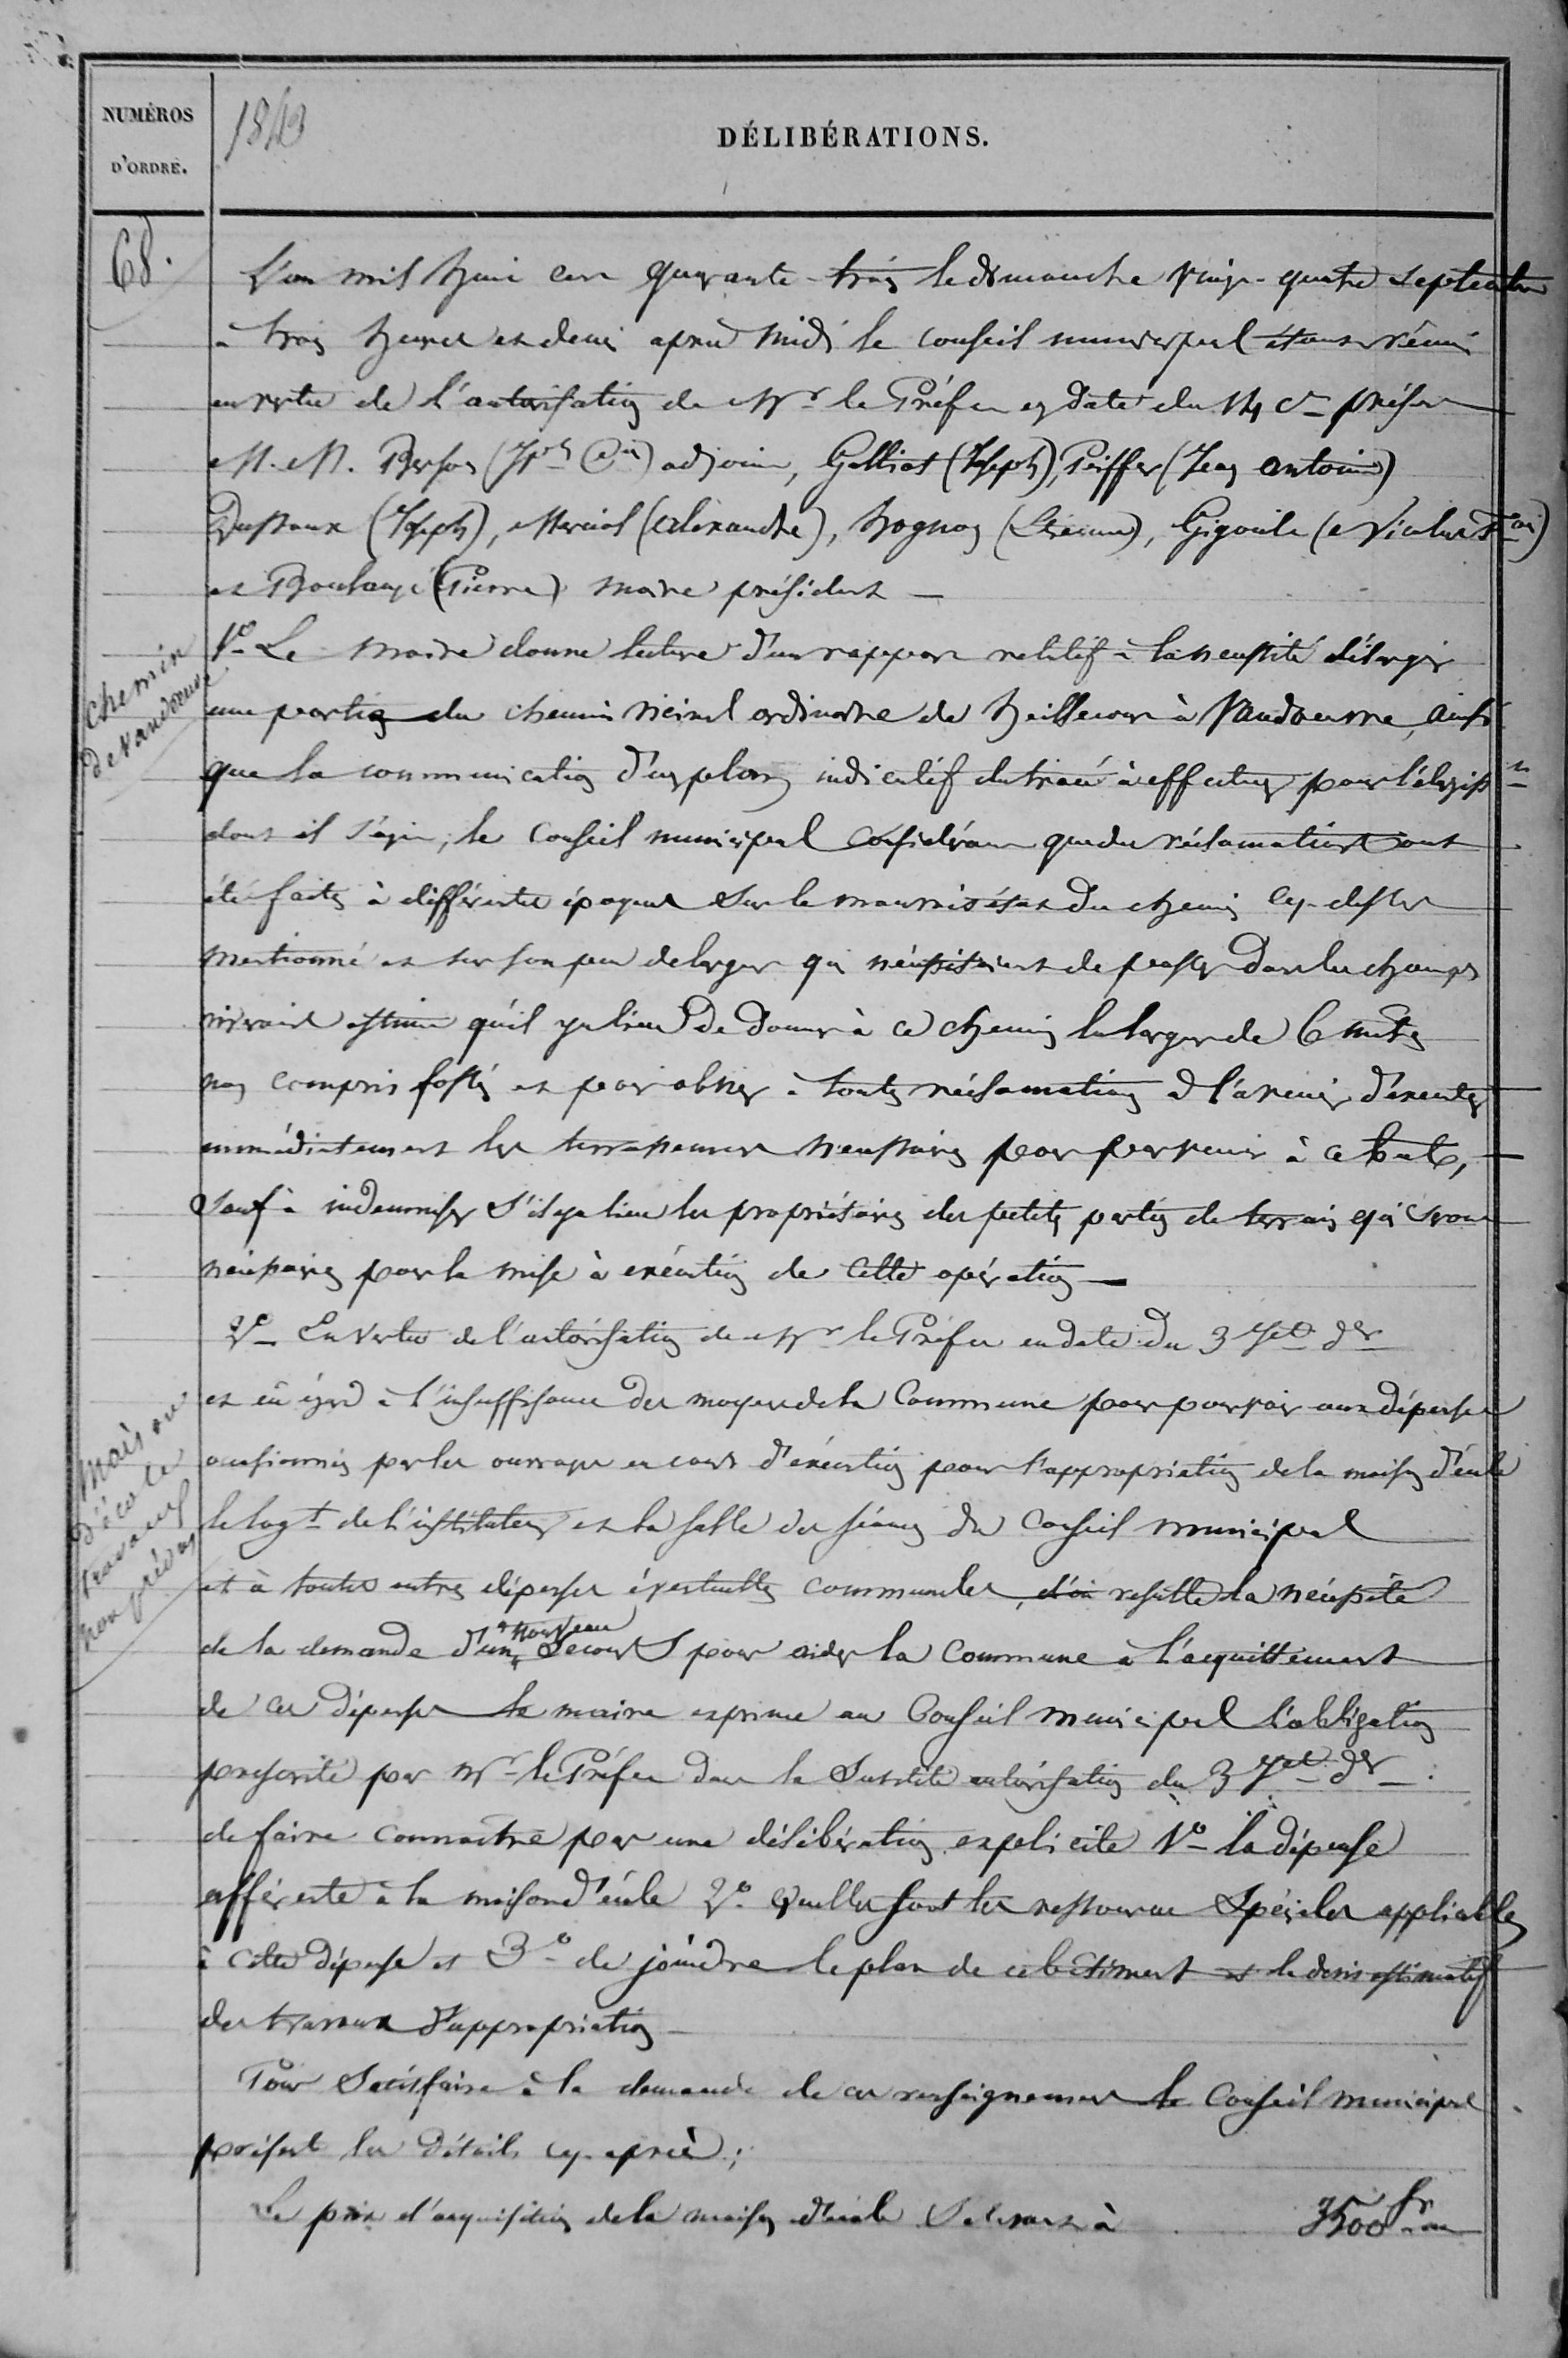 NUMÉROS
D'ORDRE.
1843
DÉLIBÉRATIONS.
68.
L'an mil huit cent quarante-trois le dimanche vingt-quatre septembre
à trois heures et demi après midi le conseil municipal étant réuni
en vertu de l'autorisation de Mr le Préfet en date du 14 Ct présens
M. M. adjoint, Galliot (Joseph), Peiffer (Jean antoine)
(Joseph), Marial (alexandre), hognon (Etienne), Gigoult (Nicolas
et Boulangé (Pierre) maire président
chemin
de Vandoeuvre
1o Le maire donne lecture d'un rapport relatif à la nécessité d'élargir
une partie du chemin vicinal ordinaire de heillecour à Vandoeuvre, ainsi
que la communication d'un plan indicatif du tracé à effectuer pour l'élargisst
dont il s'agit, le Conseil municipal Considérant que des réclamations ont
été faites à différentes époques sur le mauvais état du chemin cy-dessus
mentionné et sur son peu de largeur qui nécessitaient de passer dans les champs
riverains estime qu'il y a lieu de donner à ce chemin la largeur de 6 mètres
non compris fossés et pour obvier à toutes réclamations à l'avenir d'exécuter
immédiatement les terrassemens nécessaires pour parvenir à ce but,
sauf à indemniser s'il y a lieu les propriétaires des petites parties de terrain qui seront
nécessaires pour la mise à exécution de Cette opération
Maison
d'école
travaux
non prévus
2o En vertu de l'autorisation de Mr le Préfet en date du 3 Jet dr
et eû égard à l'insuffisance des moyens de la Commune pour pourvoir aux dépenses
occasionnées par les ouvrages en cours d'exécution pour l'appropriation de la maison d'école
le logt de l'instituteur et la salle des séances du Conseil municipal
et à toutes autres dépenses éventuelles communales, d'où résulte la nécessité
de la demande d'un nouveau Secours pour aider la Commune à l'acquittement
de ces dépenses le maire exprime au Conseil municipal l'obligation
prescrite par Mr le Préfet dans la Susdite autorisation du 3 Jet dr
de faire connaître par une délibération explicite 1o la dépense
afférente à la maison d'école 2o quelles sont les ressources Spéciales applicables
à cette dépense et 3o de joindre le plan de ce batiment et le devis estimatif
des travaux d'appropriation
Pour Satisfaire à la demande de ces renseignemens le Conseil municipal
présente les détails cy-après;
Le prix d'acquisition de la maison d'école S'élevant à 3500 fr